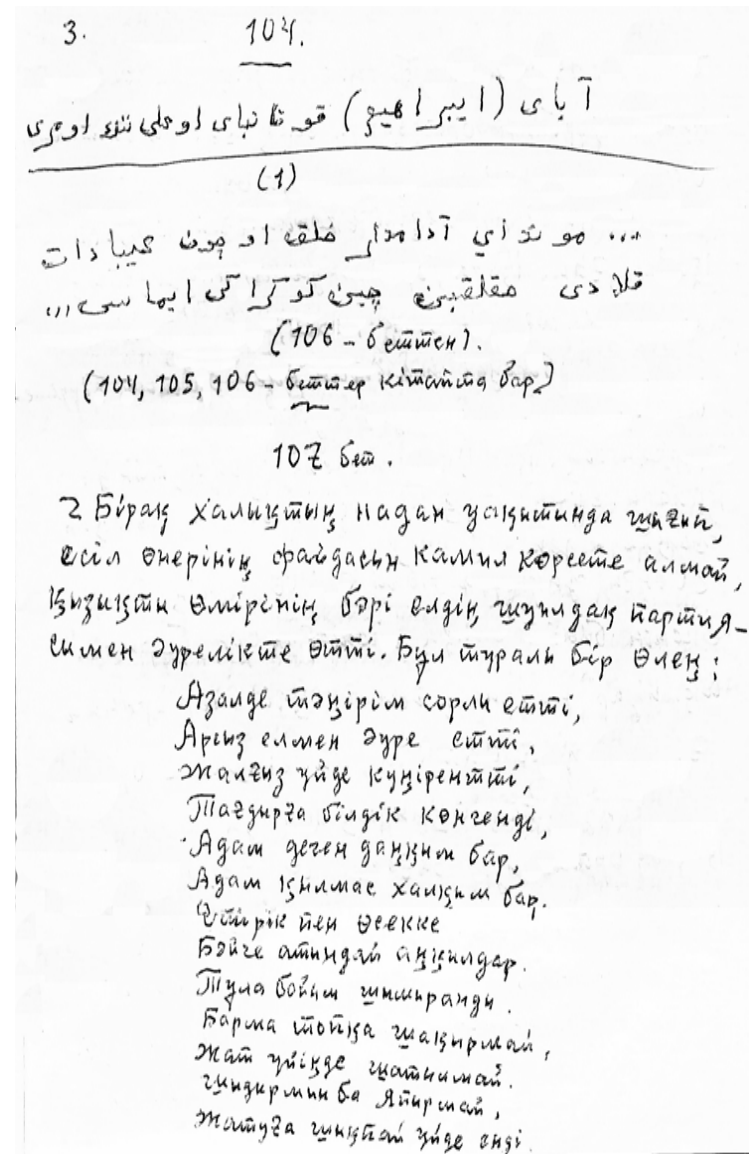 3. 104.
آ بای (ایبراهیم) قو نا نبای اوعلی ننڭ اومری
(1)
... مو نداي آدامدار خلق او چون عیبادات
قلادی
(106-беттен).
(104, 105, 106-беттер кітапта бар)
107 бет.
2 Бірақ халықтың надан уақытында шығып,
есіл өнерінің файдасын камил көрсете алмай,
қызықты өмірінің бәрі елдің шуылдақ партия-
сымен әурелікте өтті. Бұл туралы бір өлең:
Азалде тәңірім сорлы етті,
Арсыз елмен әуре етті,
Жалғыз үйде күңірентті,
Тағдырға білдік көнгенді,
Адам деген даңқым бар,
Адам қылмас халқым бар.
Өтірік пен өсекке
Бәйге атындай аңқылдар.
Тұла бойым шымыранды.
Барма топқа шақырмай,
Жат үйіңде шатылмай.
Шыдармын ба япырмай,
Жатуға шықпай үйде енді.